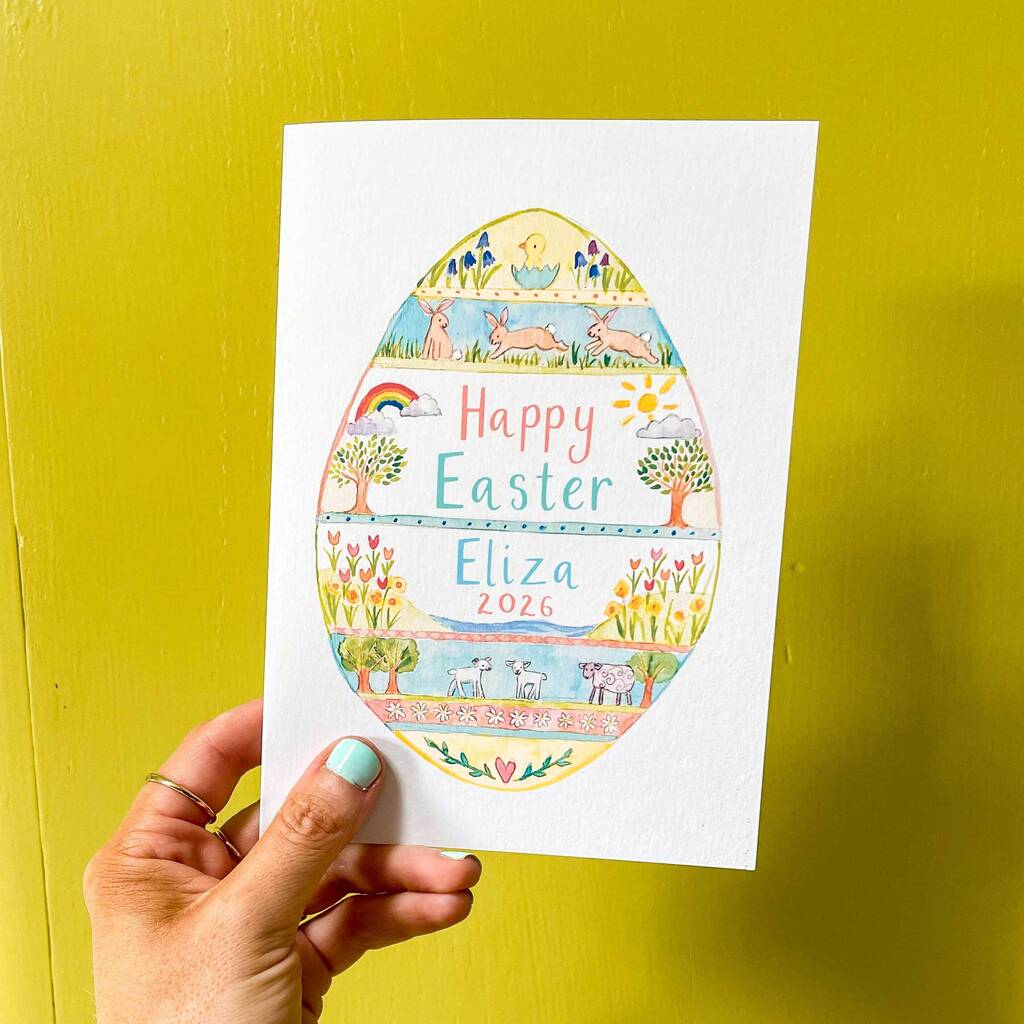 Happy
Easter
Eliza
2026